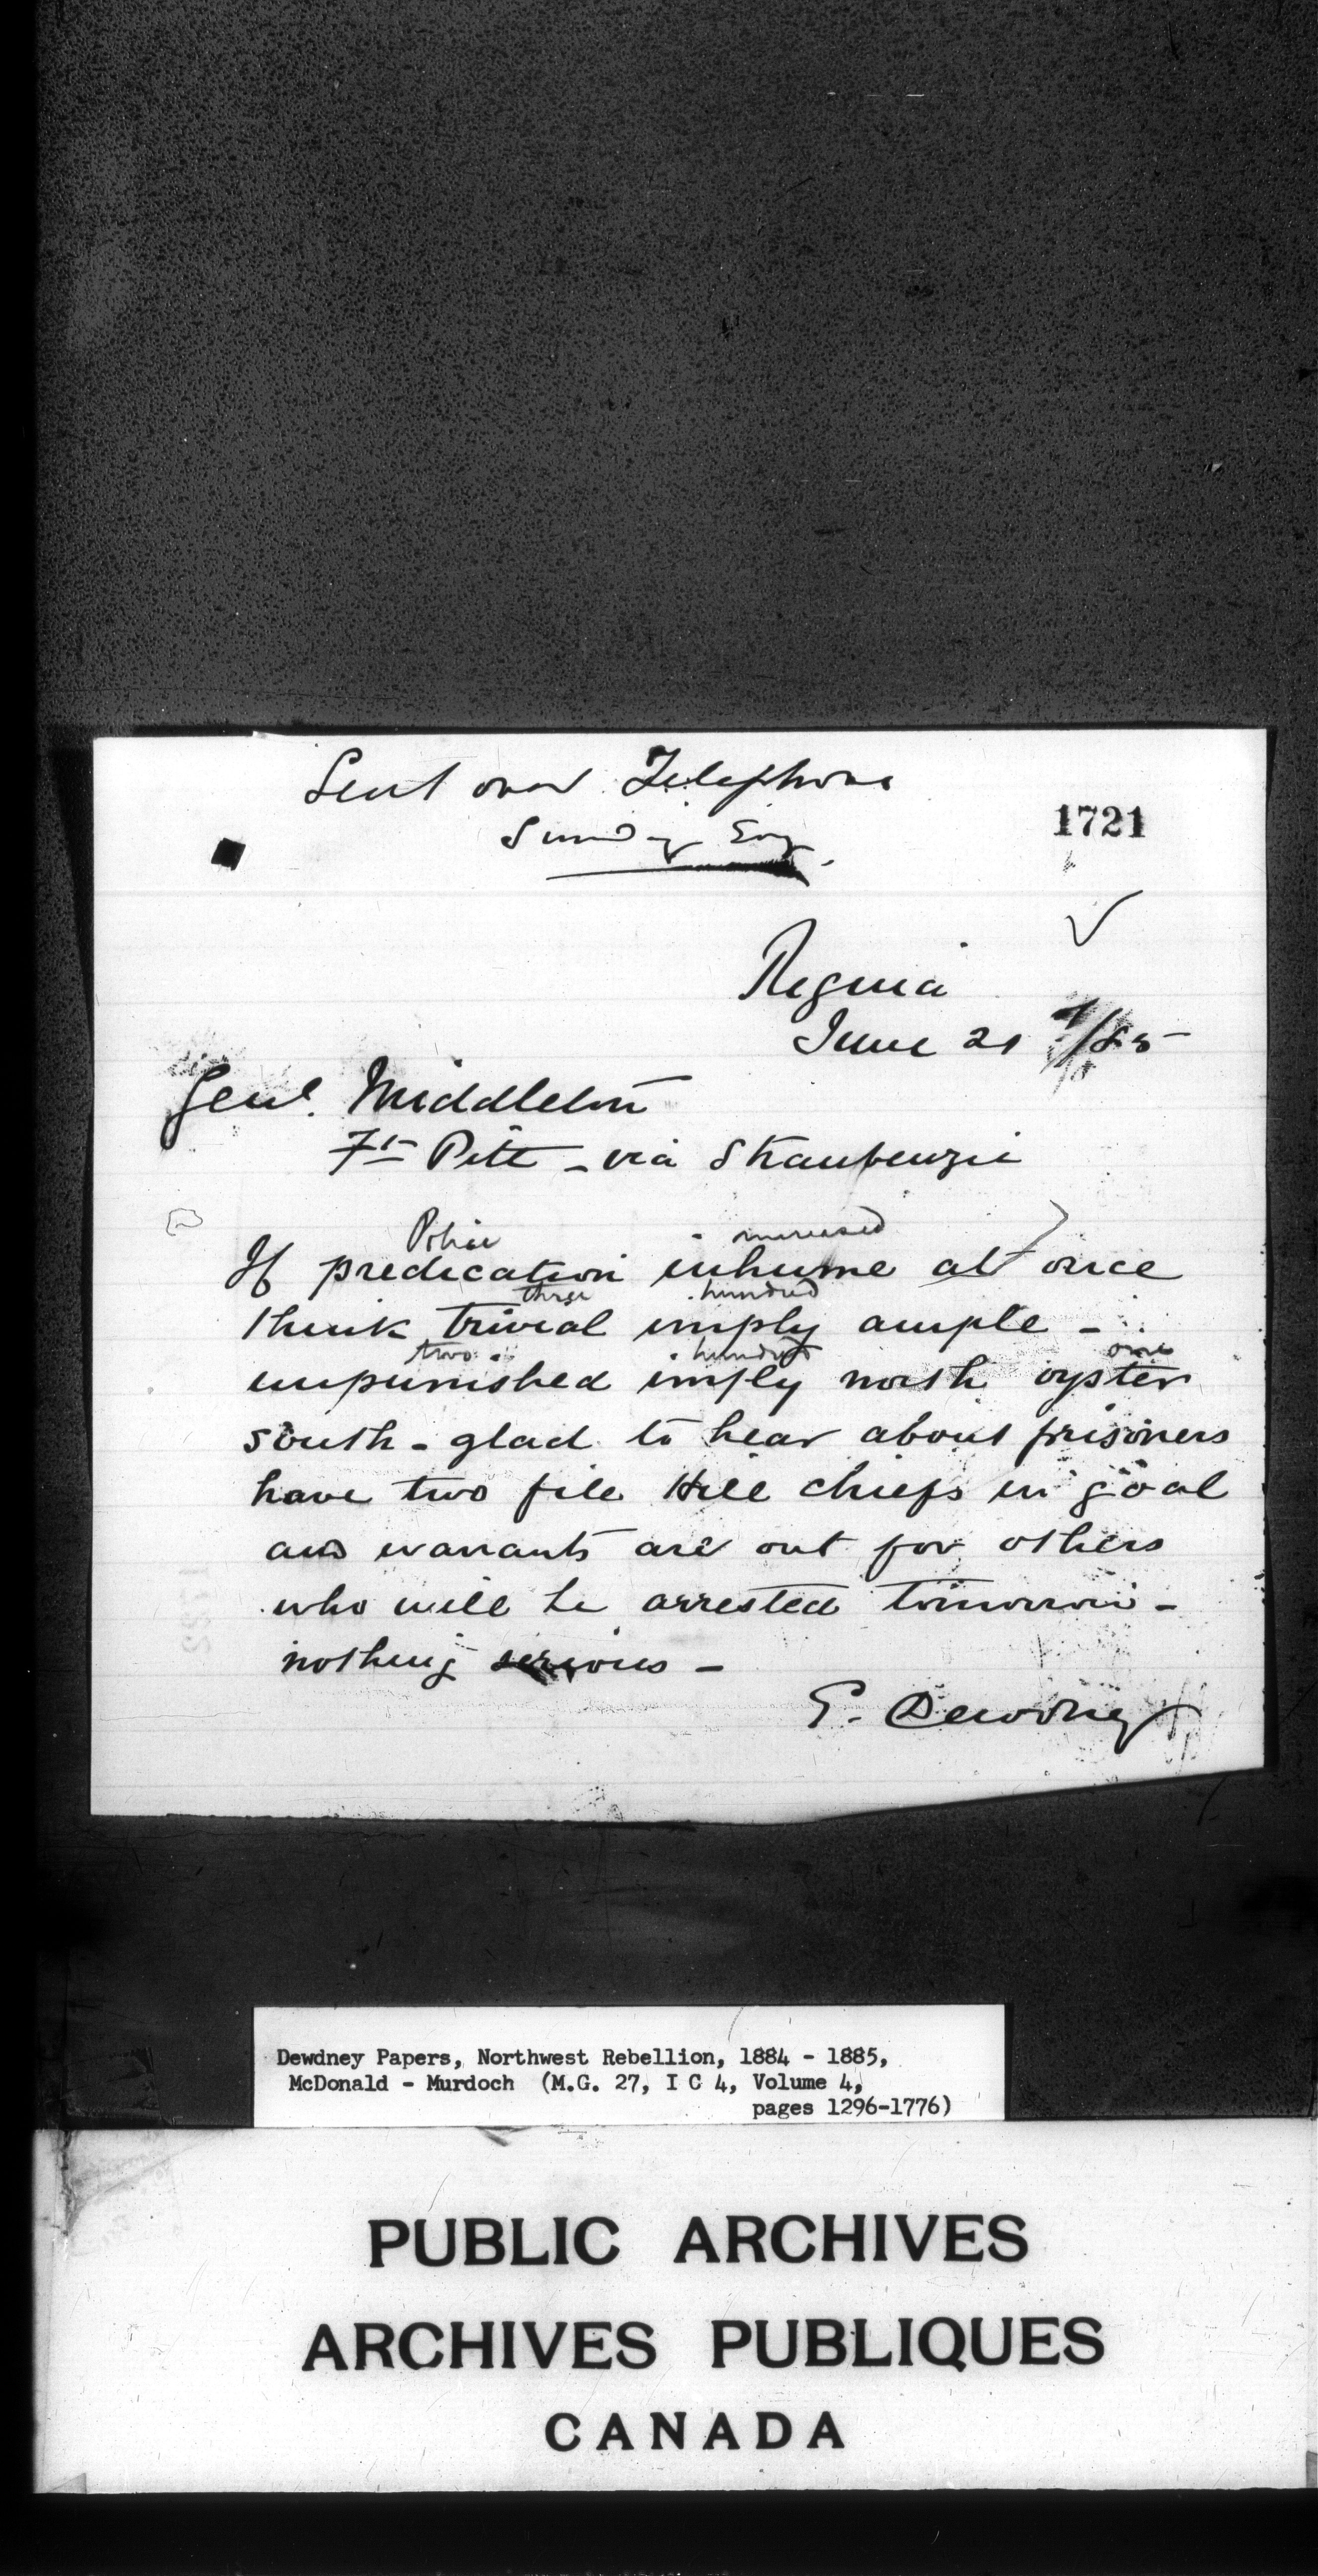 Sent over Telephone
Sunday Evg.
1721
Regina
June 21 /85
Genl. Middleton
Ft Pitt - via Straubenzie
Police increased
If predication inhume at once
three hundred
think trivial imply ample -
two hundred one
unpunished imply north oyster
south - glad to hear about prisoners
have two file Hill chiefs in goal
and warrants are out for others
who will be arrested tomorrow -
nothing serious -
E. Dewdney
Dewdney Papers, Northwest Rebellion, 1884 - 1885,
McDonald - Murdoch (M.G. 27, I C 4, Volume 4,
pages 1296-1776)
PUBLIC ARCHIVES
ARCHIVES PUBLIQUES
CANADA